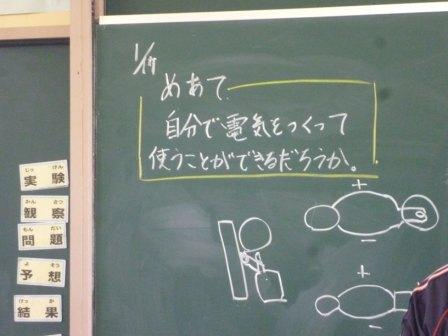 めあて
自分で電気をつくって
使うことができるだろうか。
+
−
+
−
じっ けん
実験
かん さつ
観察
もん だい
問題
よ そう
予想
けっ か
結果